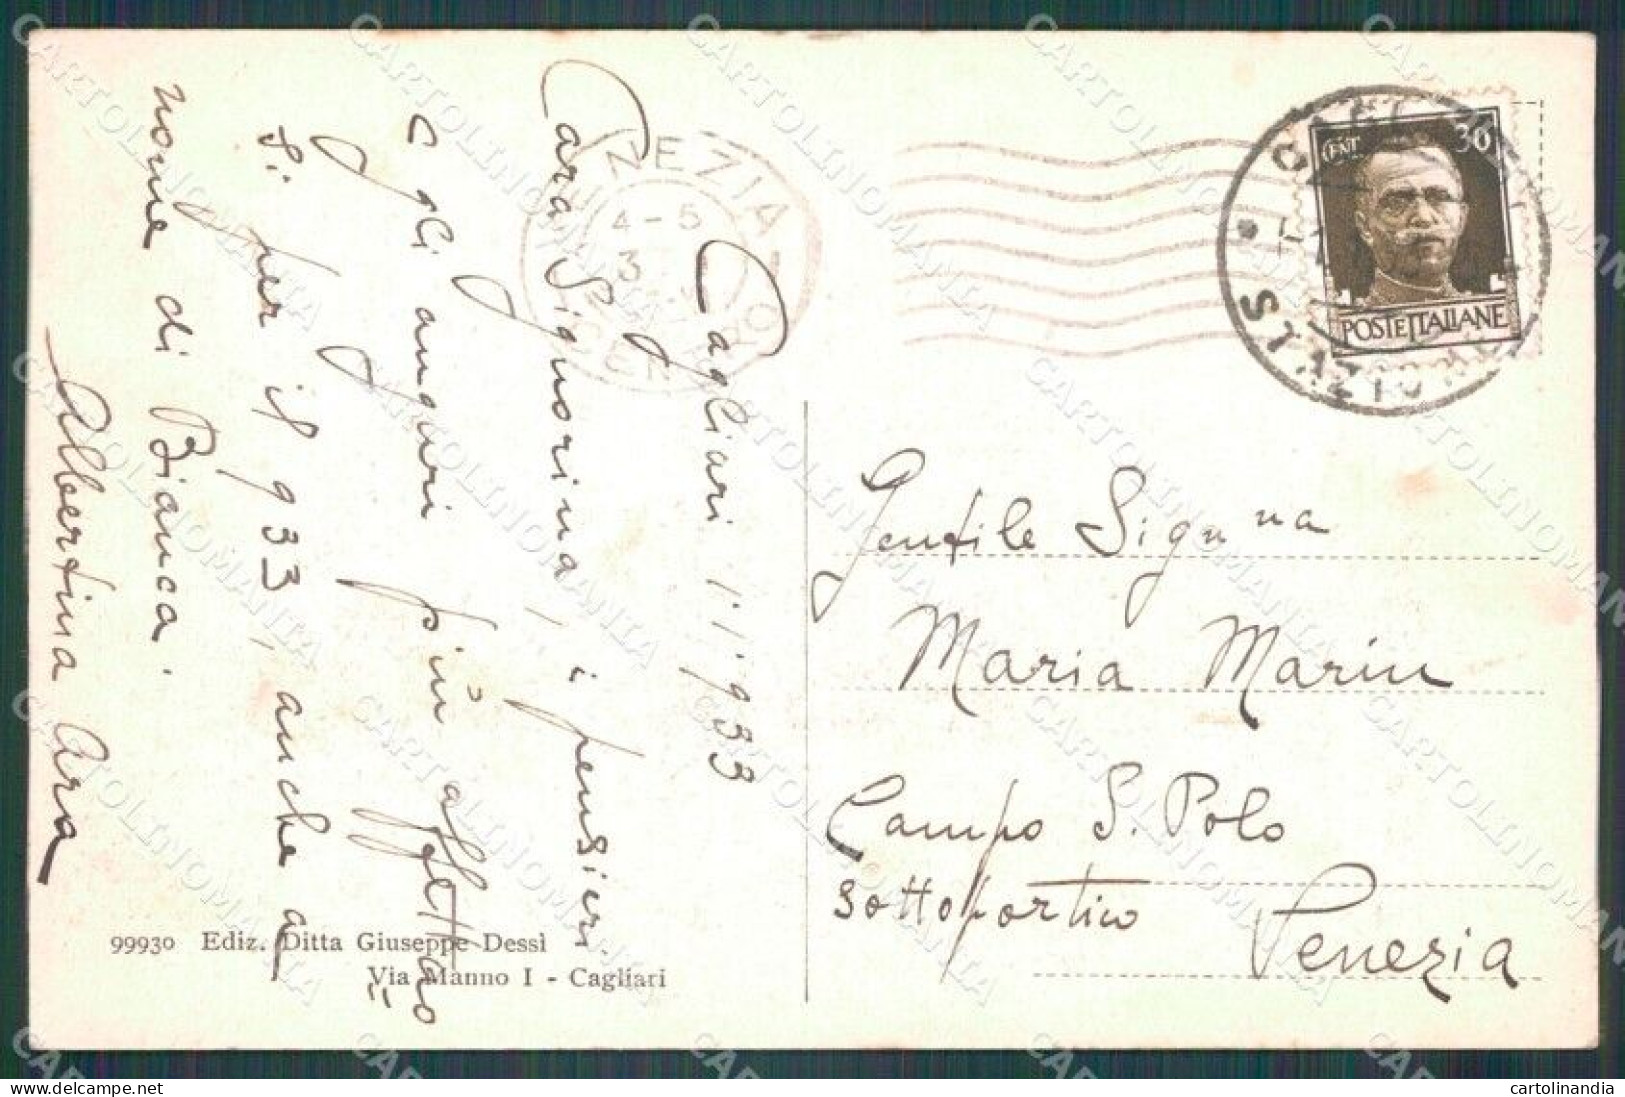 Cagliari 1.1.933
Cara Signorina, i pensieri
e gli auguri più affettuo=
si per il 933, anche a
nome di Bianca.
Albertina Ara
99930 Ediz. Ditta Giuseppe Dessì
Via Manno I - Cagliari
NEZIA
4-5
3
CENT 30
POSTE ITALIANE
Gentile Sign^na
Maria Marin
Campo S. Polo
Sottoportico
Venezia
CARTOLINOMANIA
cartolinandia